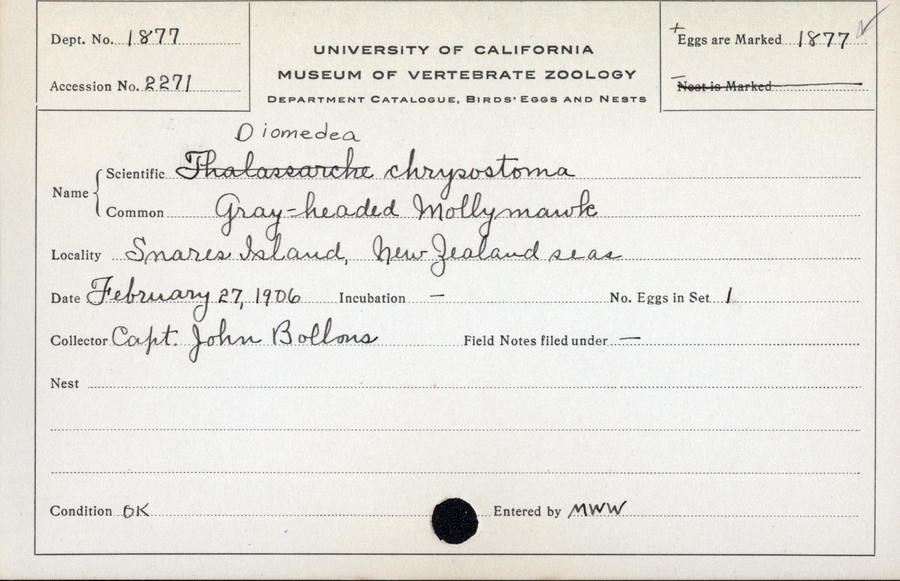 Dept. No. 1877
Accession No. 2271
UNIVERSITY OF CALIFORNIA
MUSEUM OF VERTEBRATE ZOOLOGY
DEPARTMENT CATALOGUE, BIRDS' EGGS AND NESTS
+Eggs are Marked 1877 ✓
Nest is Marked
Diomedea
Name { Scientific Thalassarche chrysostoma
Common Gray-headed Mollymawk
Locality Snares Island, New Zealand seas
Date February 27, 1906 Incubation — No. Eggs in Set 1
Collector Capt. John Bollons Field Notes filed under —
Nest
Condition OK Entered by MWW